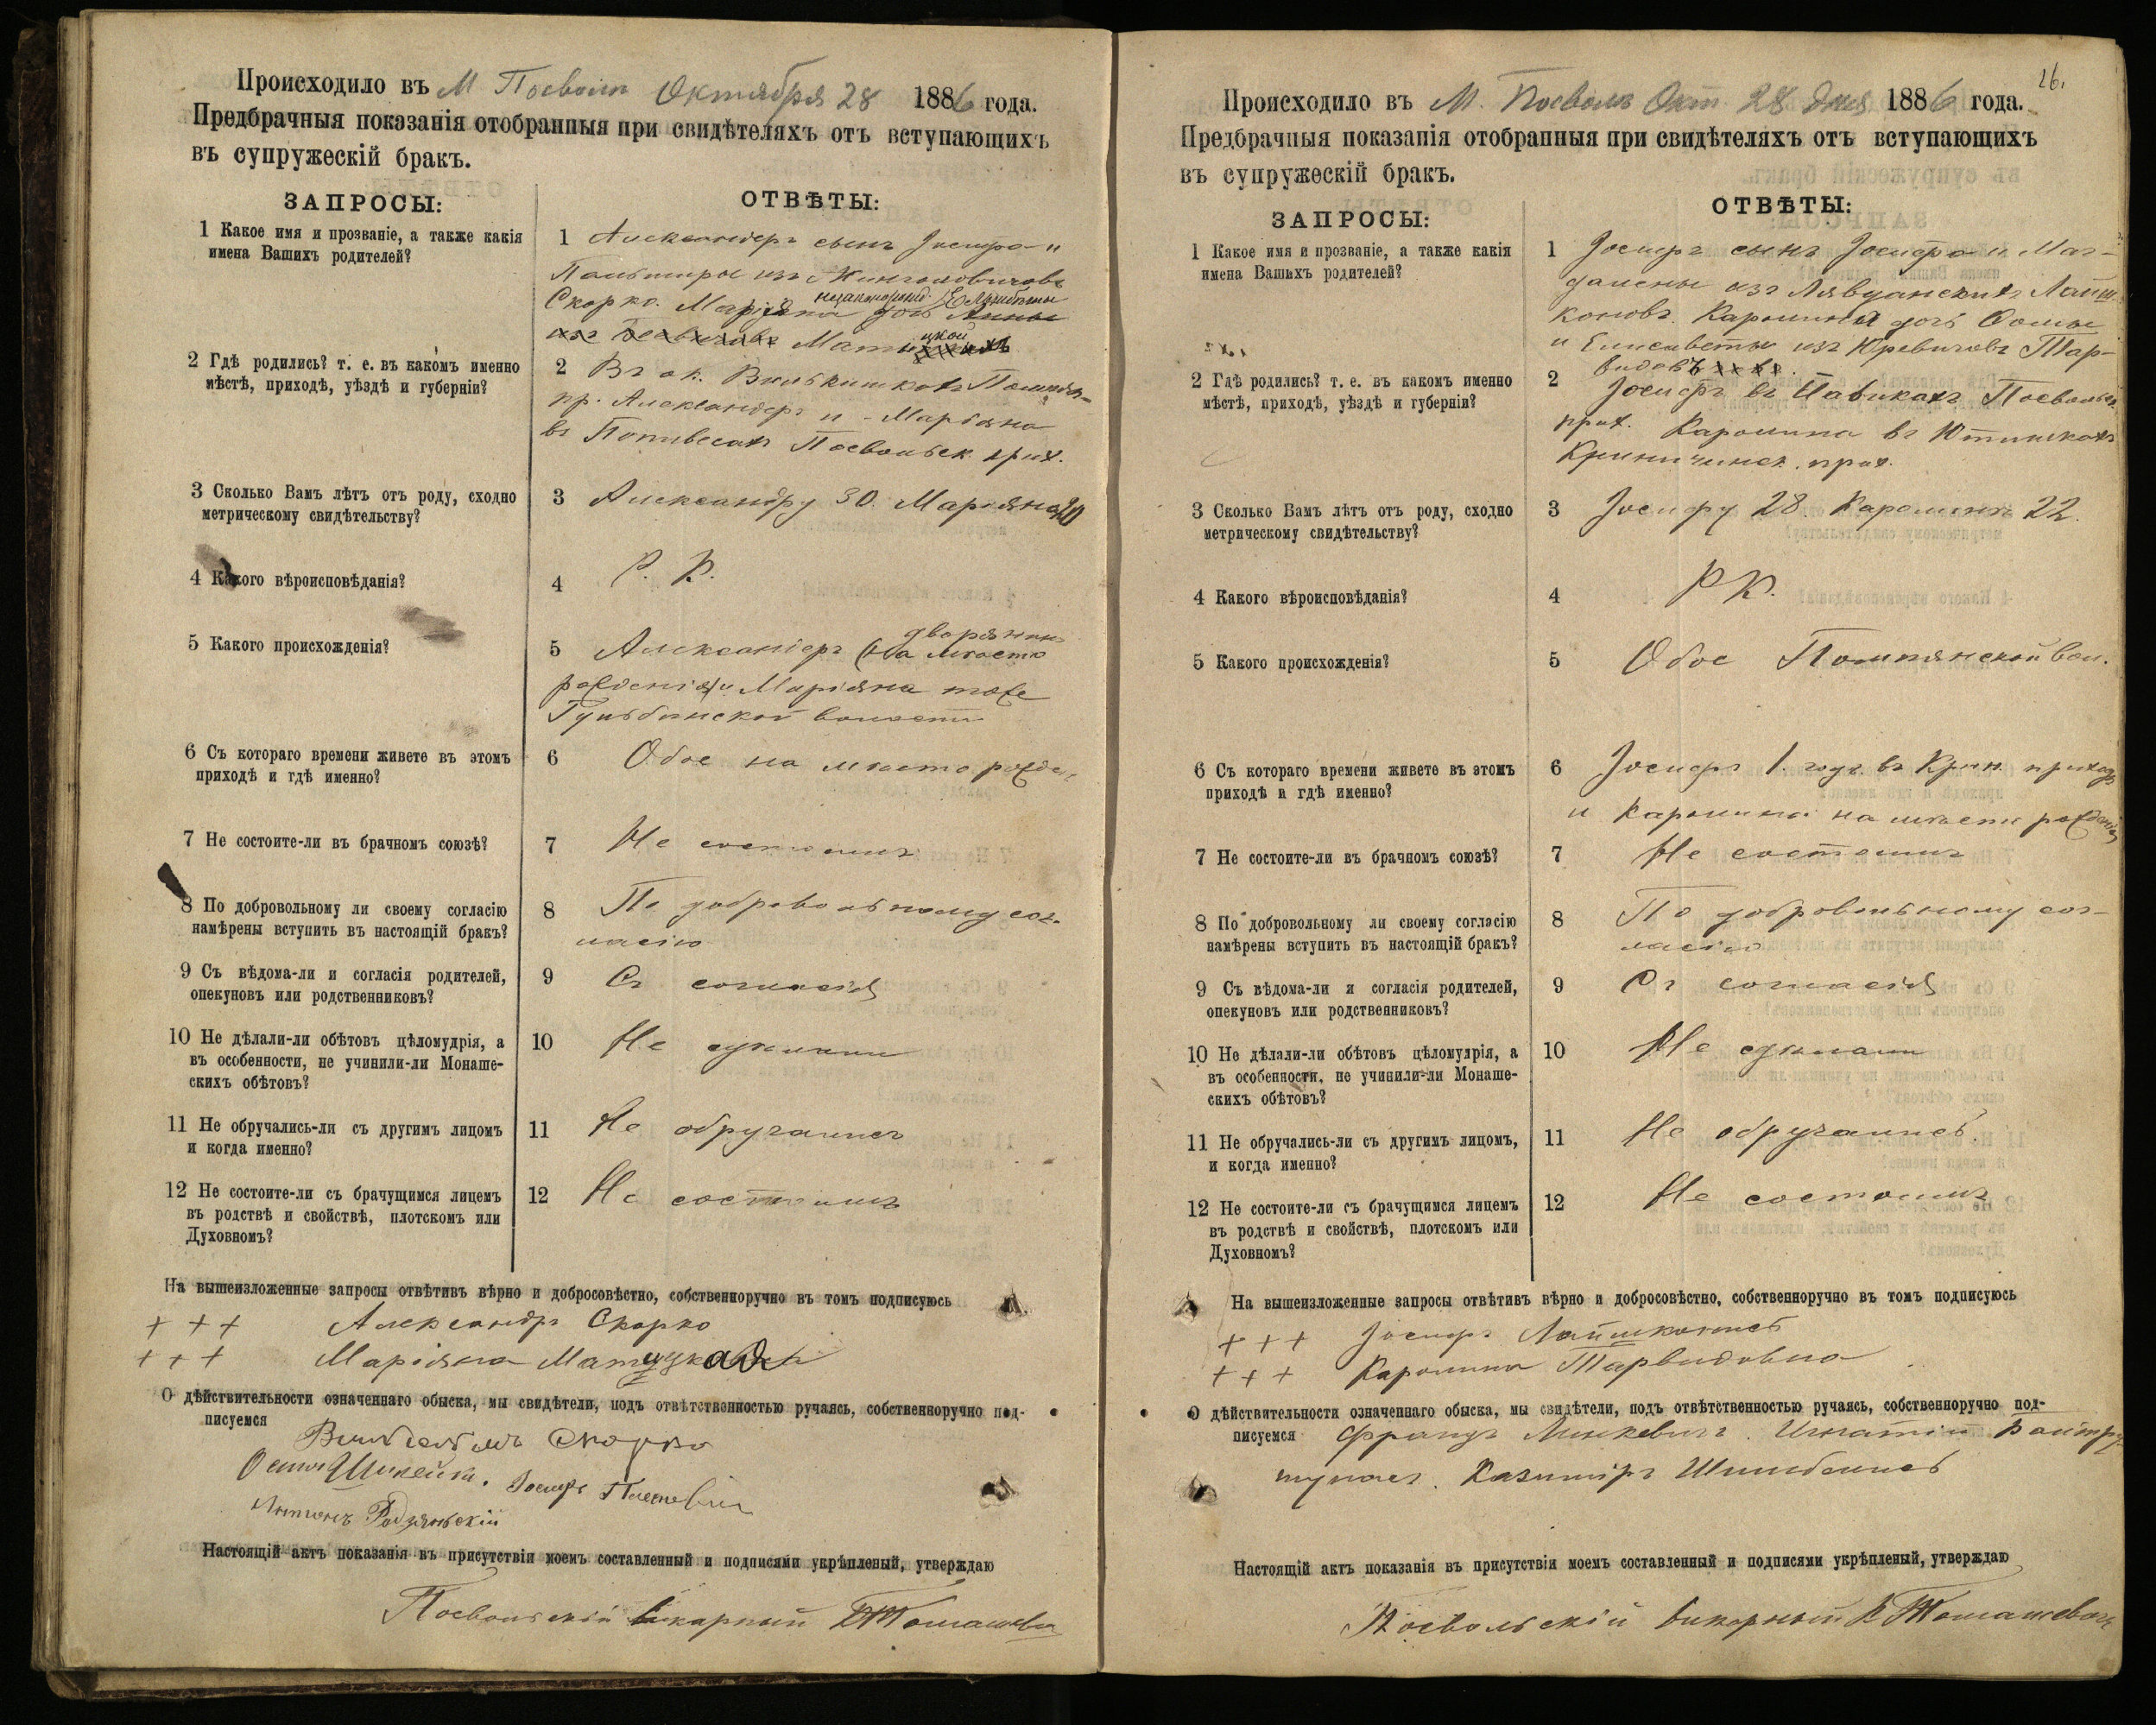 Происходило въ М Посволь Октября 28 1886 года.
Предбрачныя показанія отобранныя при свидѣтеляхъ отъ вступающихъ
въ супружескій бракъ.
ЗАПРОСЫ:
ОТВѢТЫ:
1 Какое имя и прозваніе, а также какія
имена Вашихъ родителей?
1 Александеръ сынъ Іосифа и
Скорко. Маріяна
2 Гдѣ родились? т. е. въ какомъ именно
мѣстѣ, приходѣ, уѣздѣ и губерніи?
2 Въ ок.
пр. Александеръ и Маріяна
въ Посвольск. прих.
3 Сколько Вамъ лѣтъ отъ роду, сходно
метрическому свидѣтельству?
3 Александру 30. Маріяна
4 Какого вѣроисповѣданія?
4 Р. К.
5 Какого происхожденія?
дворянинъ
5 Александеръ
Маріяна тоже
волости
6 Съ котораго времени живете въ этомъ
приходѣ и гдѣ именно?
6 Обое на мѣсто рожден
7 Не состоите-ли въ брачномъ союзѣ?
7 Не состоимъ
8 По добровольному ли своему согласію
намѣрены вступить въ настоящій бракъ?
8 По добровольному сог-
ласію
9 Съ вѣдома-ли и согласія родителей,
опекуновъ или родственниковъ?
9 Съ согласія
10 Не дѣлали-ли обѣтовъ цѣломудрія, а
въ особенности, не учинили-ли Монаше-
скихъ обѣтовъ?
10 Не сдѣлали
11 Не обручались-ли съ другимъ лицомъ
и когда именно?
11 Не обручались
12 Не состоите-ли съ брачущимся лицемъ
въ родствѣ и свойствѣ, плотскомъ или
Духовномъ?
12 Не состоимъ
На вышеизложенные запросы отвѣтивъ вѣрно и добросовѣстно, собственноручно въ томъ подписуюсь
+ + + Александръ Скорко
+ + + Маріяна
О дѣйствительности означеннаго обыска, мы свидѣтели, подъ отвѣтственностью ручаясь, собственноручно под-
писуемся
Скорко
Іосифъ
Антонъ
Настоящій актъ показанія въ присутствіи моемъ составленный и подписями укрѣпленый, утверждаю
Посвольскій викарный
26.
Происходило въ М. Посволь Окт. 28 дня 1886 года.
Предбрачныя показанія отобранныя при свидѣтеляхъ отъ вступающихъ
въ супружескій бракъ.
ЗАПРОСЫ:
ОТВѢТЫ:
1 Какое имя и прозваніе, а также какія
имена Вашихъ родителей?
1 Іосифъ сынъ Іосифа и Маг-
далены изъ
Каролина дочь Ѳомы
и Елисаветы изъ Юревичовъ Тар-
видовъ
2 Гдѣ родились? т. е. въ какомъ именно
мѣстѣ, приходѣ, уѣздѣ и губерніи?
2 Іосифъ въ Посвольск.
прих. Каролина въ
прих.
3 Сколько Вамъ лѣтъ отъ роду, сходно
метрическому свидѣтельству?
3 Іосифу 28 Каролина 22.
4 Какого вѣроисповѣданія?
4 Р К.
5 Какого происхожденія?
5 Обое Помпянской вол.
6 Съ котораго времени живете въ этомъ
приходѣ и гдѣ именно?
6 Іосифъ 1. годъ въ Крин. приходѣ
и Каролина на мѣстѣ рожденія
7 Не состоите-ли въ брачномъ союзѣ?
7 Не состоимъ
8 По добровольному ли своему согласію
намѣрены вступить въ настоящій бракъ?
8 По добровольному сог-
ласію
9 Съ вѣдома-ли и согласія родителей,
опекуновъ или родственниковъ?
9 Съ согласія
10 Не дѣлали-ли обѣтовъ цѣломудрія, а
въ особенности, не учинили-ли Монаше-
скихъ обѣтовъ?
10 Не сдѣлали
11 Не обручались-ли съ другимъ лицомъ,
и когда именно?
11 Не обручались.
12 Не состоите-ли съ брачущимся лицемъ
въ родствѣ и свойствѣ, плотскомъ или
Духовномъ?
12 Не состоимъ
На вышеизложенные запросы отвѣтивъ вѣрно и добросовѣстно, собственноручно въ томъ подписуюсь
+ + + Іосифъ
+ + + Каролина Тарвидовна
О дѣйствительности означеннаго обыска, мы свидѣтели, подъ отвѣтственностью ручаясь, собственноручно под-
писуемся Францъ Минкевичъ. Игнатій
Казиміръ
Настоящій актъ показанія въ присутствіи моемъ составленный и подписями укрѣпленый, утверждаю
Посвольскій викарный К Томашевичъ